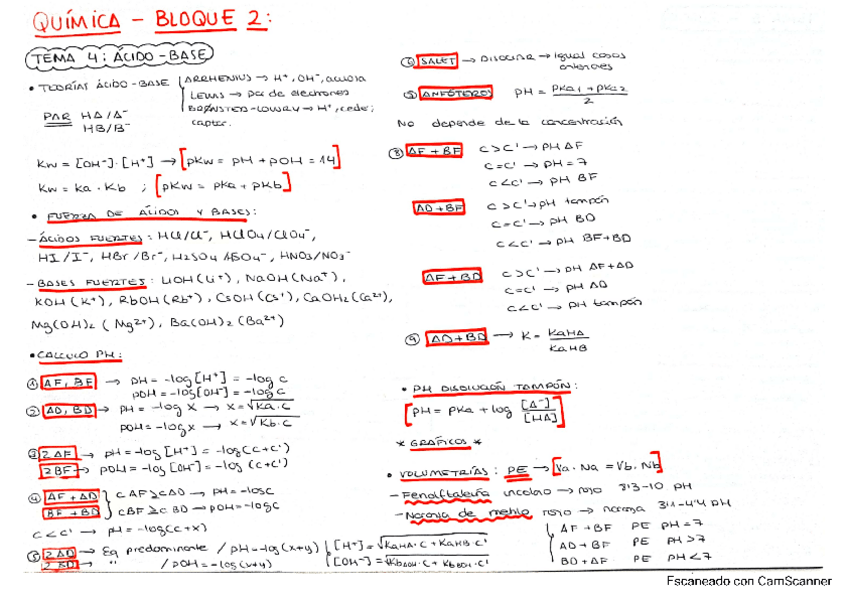 QUÍMICA - BLOQUE 2:
TEMA 4: ÁCIDO-BASE
• TEORÍAS ÁCIDO-BASE
ARRHENIUS → H⁺, OH⁻, acuosa
LEWIS → Par de electrones
BRØNSTED-LOWRY → H⁺, cede;
captar.
PAR HA/A⁻
HB/B⁻
Kw = [OH⁻]·[H⁺] → [pKw = pH + pOH = 14]
Kw = Ka · Kb ; [pKw = pKa + pKb]
• FUERZA DE ÁCIDOS Y BASES:
- ÁCIDOS FUERTES: HCl/Cl⁻, HClO4/ClO4⁻,
HI/I⁻, HBr/Br⁻, H2SO4/HSO4⁻, HNO3/NO3⁻
- BASES FUERTES: LiOH(Li⁺), NaOH(Na⁺),
KOH(K⁺), RbOH(Rb⁺), CsOH(Cs⁺), CaOH2(Ca²⁺),
Mg(OH)2 (Mg²⁺), Ba(OH)2 (Ba²⁺)
• CÁLCULO PH:
① AF, BF → pH = -log[H⁺] = -log c
pOH = -log[OH⁻] = -log c
② AD, BD → pH = -log x → x = √Ka·C
pOH = -log x → x = √Kb·C
③ 2AF → pH = -log[H⁺] = -log(c+c')
2BF → pOH = -log[OH⁻] = -log(c+c')
④ AF + AD } cAF ≥ cAD → pH = -log c
BF + BD } cBF ≥ cBD → pOH = -log c
c < c' → pH = -log(c+x)
⑤ 2AD → Eq predominante / pH = -log(x+y) [H⁺] = √KaHA·C + KaHB·C'
2BD → " / pOH = -log(x+y) [OH⁻] = √KbAOH·C + KbBOH·C'
⑥ SALES → Disociar → igual casos
anteriores
ANFÓTEROS pH = pKa1 + pKa2 / 2
No depende de la concentración
⑧ AF + BF c > c' → pH AF
c = c' → pH = 7
c < c' → pH BF
AD + BF c > c' → pH tampón
c = c' → pH BD
c < c' → pH BF + BD
AF + BD c > c' → pH AF + AD
c = c' → pH AD
c < c' → pH tampón
⑨ AD + BD → K = KaHA / KaHB
• PH DISOLUCIÓN TAMPÓN:
[pH = pKa + log [A⁻]/[HA]]
* GRÁFICOS *
• VOLUMETRÍAS: PE → [Va · Na = Vb · Nb]
- Fenolftaleína incoloro → rojo 8'3-10 pH
- Naranja de metilo rojo → naranja 3'1-4'4 pH
AF + BF PE pH = 7
AD + BF PE pH > 7
BD + AF PE pH < 7
Escaneado con CamScanner